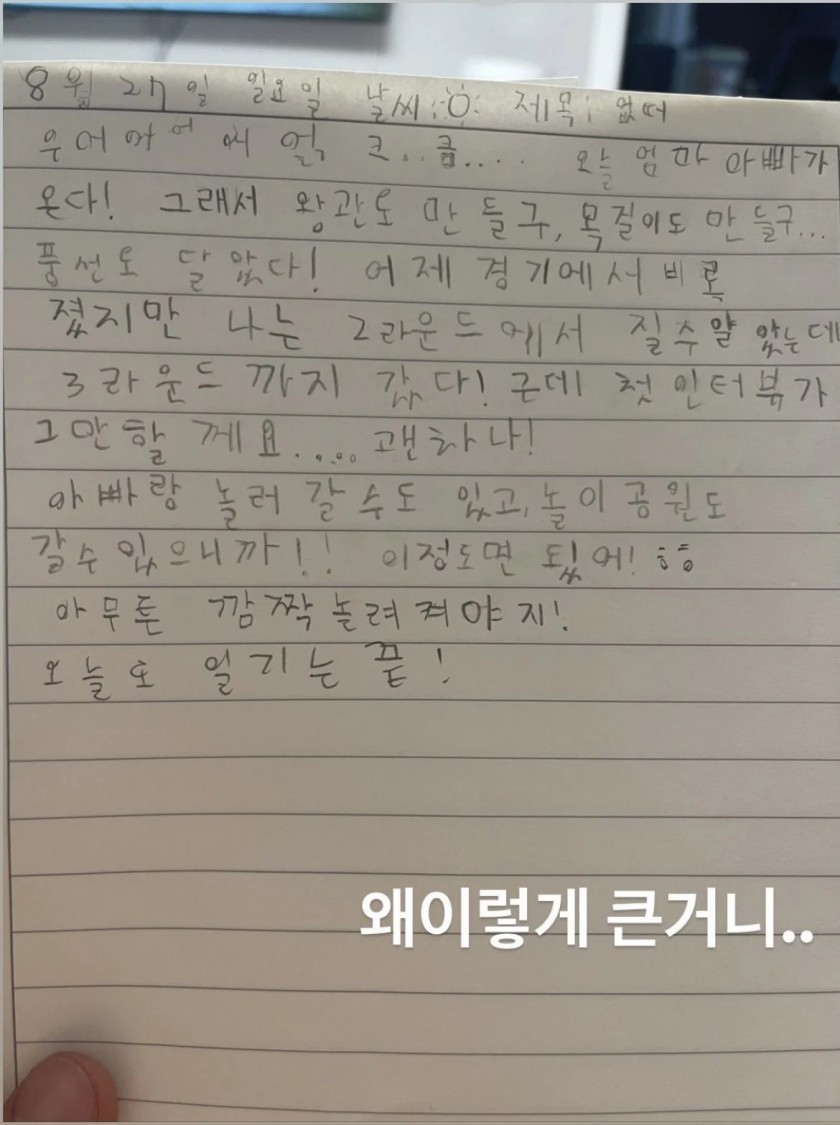 8월 27일 일요일 날씨:☼: 제목: 없떠
우어어어에 얽 크..큼.... 오늘 엄마 아빠가
온다! 그래서 왕관도 만들구, 목걸이도 만들구...
풍선도 달았다! 어제 경기에서 비록
졌지만 나는 2라운드에서 질수알 았는데
3라운드 까지 갔다! 근데 첫 인터뷰가
그만할 께요..... 괜차나!
아빠랑 놀러 갈 수도 있고, 놀이공원도
갈수 있으니까!! 이정도면 됬어! ㅎㅎ
아무튼 깜짝 놀려켜야지!
오늘도 일기는 끝!
왜이렇게 큰거니..